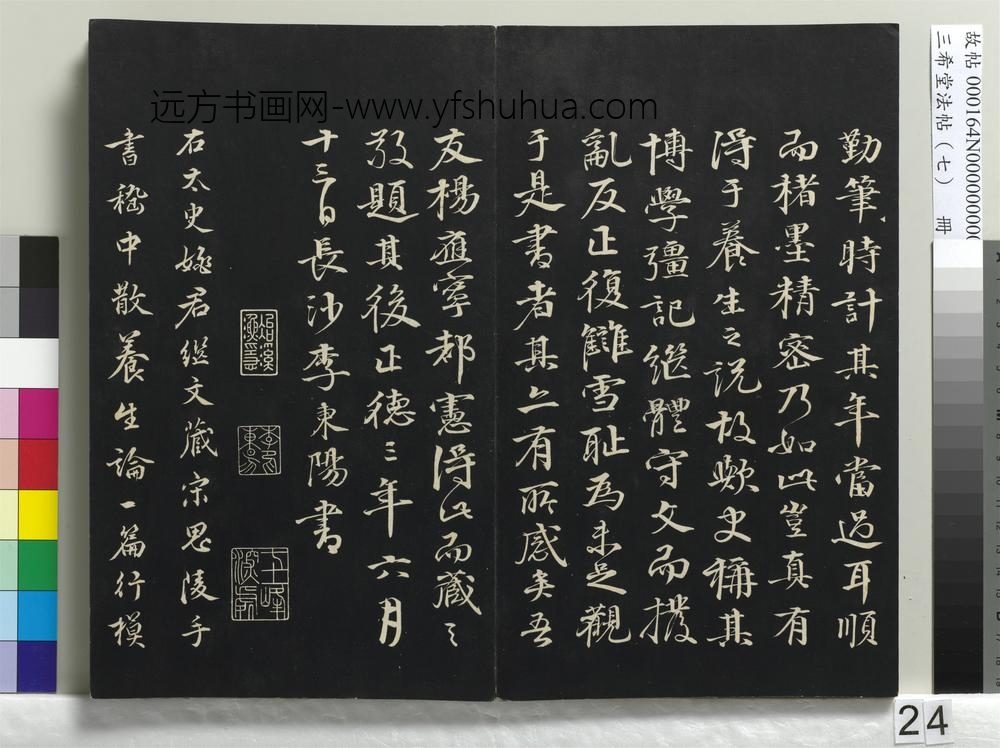 勤筆時計其年當過耳順
而楮墨精密乃如此豈真有
得于養生之説故歟史稱其
博學彊記繼體守文而撥
亂反正復讎雪耻爲未足觀
于是書者其亦有所感矣吾
友楊應寧都憲得此而藏之
敬題其後正德三年六月
十三日長沙李東陽書
右太史姚君繼文藏宋思陵手
書嵇中散養生論一篇行模
远方书画网-www.yfshuhua.com
故帖 000164N00000000
三希堂法帖（七） 冊
24